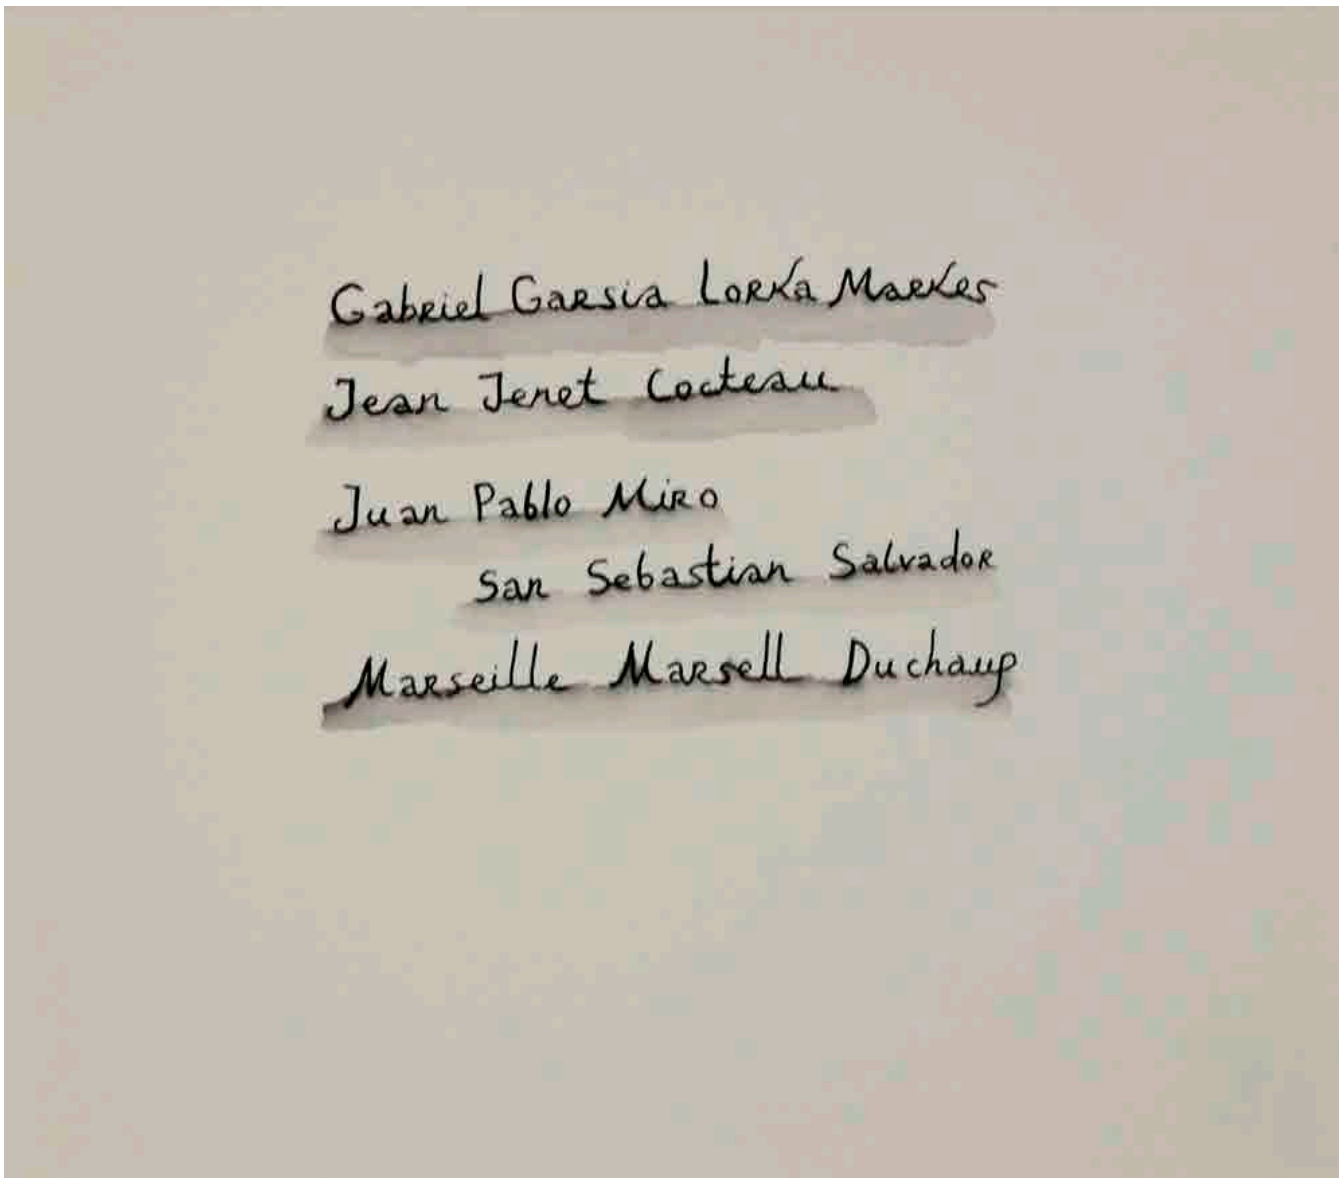 Gabriel Garsia Lorka Markes
Jean Jenet Cocteau
Juan Pablo Miro
San Sebastian Salvador
Marseille Marsell Duchamp